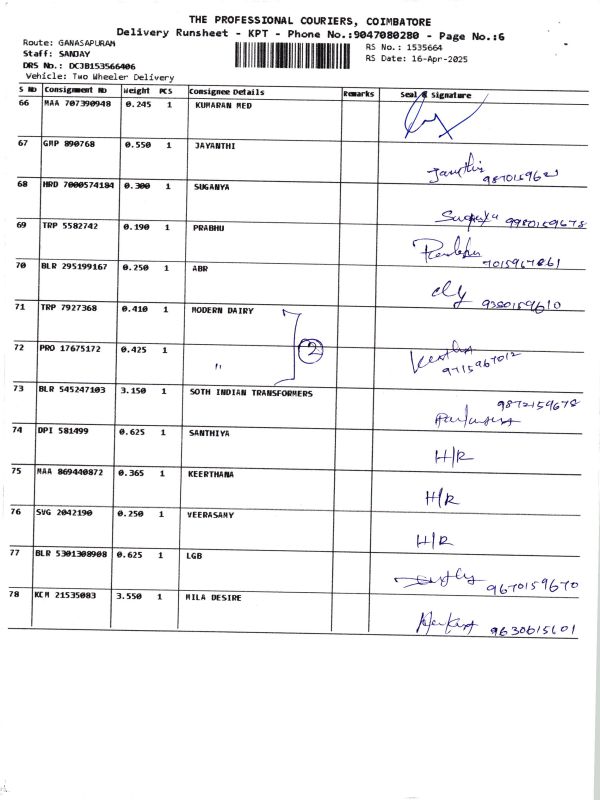 THE PROFESSIONAL COURIERS, COIMBATORE
Delivery Runsheet - KPT - Phone No.:9047080280 - Page No.:6
Route: GANASAPURAM
RS No.: 1535664
Staff: SANJAY
RS Date: 16-Apr-2025
DRS No.: DCJB153566406
Vehicle: Two Wheeler Delivery
S No Consignment No Weight PCS Consignee Details Remarks Seal & Signature
66 MAA 707390948 0.245 1 KUMARAN MED
67 GMP 890768 0.550 1 JAYANTHI
68 HRD 7000574184 0.300 1 SUGANYA
9980159678
69 TRP 5582742 0.190 1 PRABHU
70 BLR 295199167 0.250 1 ABR
9380159610
71 TRP 7927368 0.410 1 MODERN DAIRY
2
72 PRO 17675172 0.425 1 "
9715967012
73 BLR 545247103 3.150 1 SOTH INDIAN TRANSFORMERS
9872159678
74 DPI 581499 0.625 1 SANTHIYA
H/R
75 MAA 869440872 0.365 1 KEERTHANA
H/R
76 SVG 2042190 0.250 1 VEERASAMY
H/R
77 BLR 5301308908 0.625 1 LGB
9670159670
78 KCM 21535083 3.550 1 MILA DESIRE